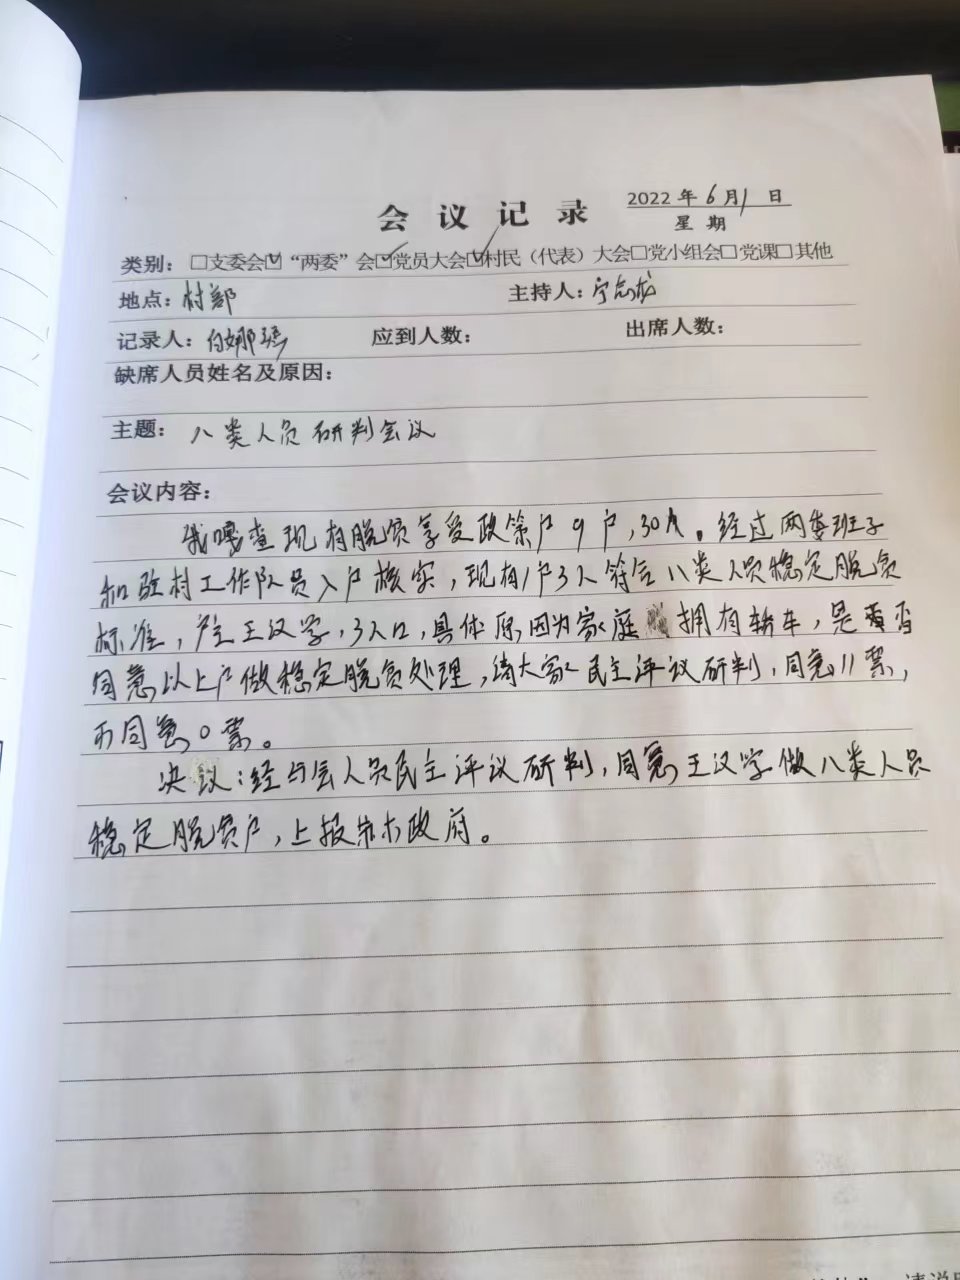 会议记录
2022年6月1日
星期
类别：□支委会☑“两委”会☑党员大会☑村民（代表）大会□党小组会□党课□其他
地点：村部 主持人：宁志龙
记录人：白娜 应到人数： 出席人数：
缺席人员姓名及原因：
主题：八类人员研判会议
会议内容：
我嘎查现有脱贫享受政策户9户，30人。经过两委班子
和驻村工作队员入户核实，现有1户3人符合八类人员稳定脱贫
标准，户主王汉学，3人口，具体原因为家庭拥有轿车，是否
同意以上户做稳定脱贫处理，请大家民主评议研判，同意11票，
不同意0票。
决议：经与会人员民主评议研判，同意王汉学做八类人员
稳定脱贫户，上报 政府。